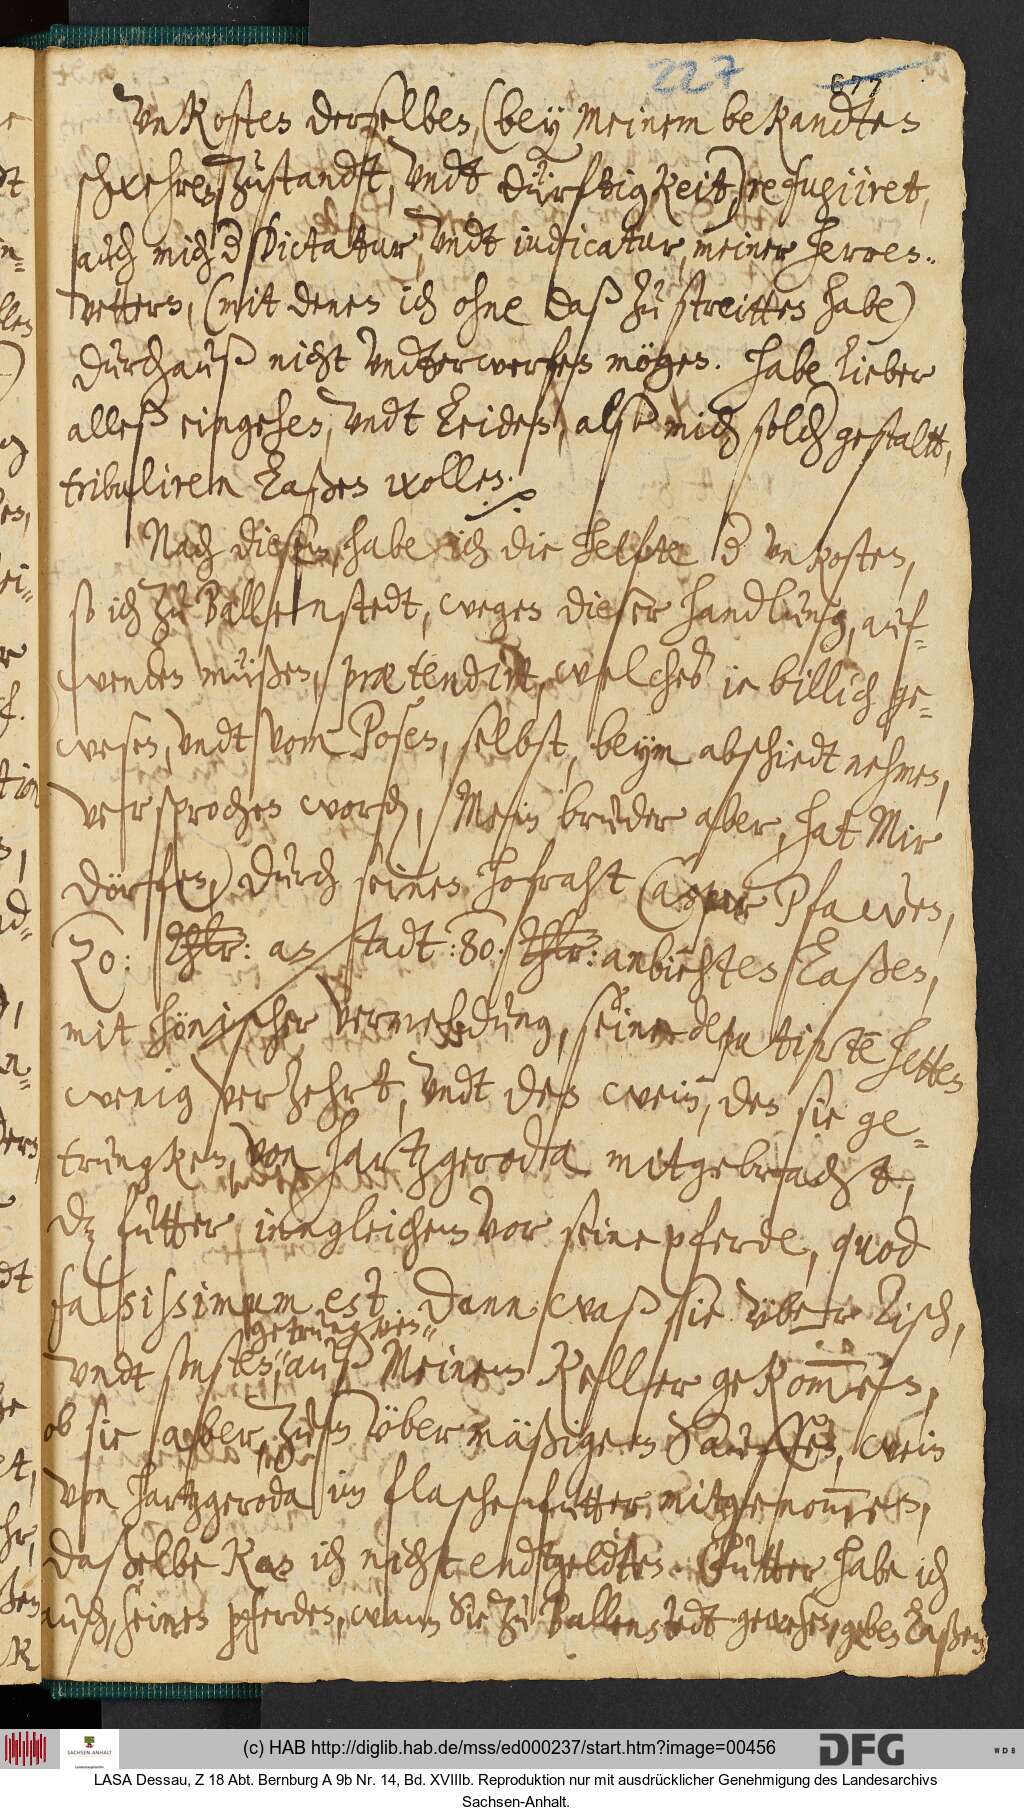 227 677
Vnkosten derselben, (bey meinem bekandten
schwehren Zustandt, Vndt dürftigkeit,) refusiret,
auch mich d Dictattur, Vndt iudicatur, meiner herren
Vettern, (mit denen ich ohne daß zu streitten habe)
durchauß nicht Vndterwerfen mögen. Habe lieber
alleß eingehen, Vndt leiden, alß mich solch gestaltt,
tribuliren laßen wollen.
Nach diesem, habe ich die helfte d vnkosten,
so ich zu Ballenstedt, wegen dieser handlung, auf-
wenden müßen, prætendirt, welches ie billich ge-
wesen, vndt vom Posen, selbst, beym abschiedt nehmen,
versprochen word, Mein bruder aber, hat Mir
dörffen, durch seinen Hofraht Caspar Pfawen,
20: Thlr: an stadt :80: Thlr: anbiehten laßen,
mit hönischer Vermeldung, seine deputirte hetten
wenig verzehrt, Vndt den wein, den sie ge-
truncken, von Hartzgeroda mitgebracht,
dz futter, inngleichen vor seine pferde, quod
falsissimum est. Dann waß sie vber Tisch,
getruncken
Vndt sonsten, auß Meinem Keller gekommen,
ob sie aber, zum vbermäßigen Sauffen, wein
von Hartzgeroda im flaschenfutter mitgenommen,
daßelbe kan ich nicht endtgeldten. Futter habe ich
auch, seinen pferden, wann Sie zu Ballenstedt gewesen, geben laßen
(c) HAB http://diglib.hab.de/mss/ed000237/start.htm?image=00456
SACHSEN-ANHALT
DFG
WDB
LASA Dessau, Z 18 Abt. Bernburg A 9b Nr. 14, Bd. XVIIIb. Reproduktion nur mit ausdrücklicher Genehmigung des Landesarchivs
Sachsen-Anhalt.